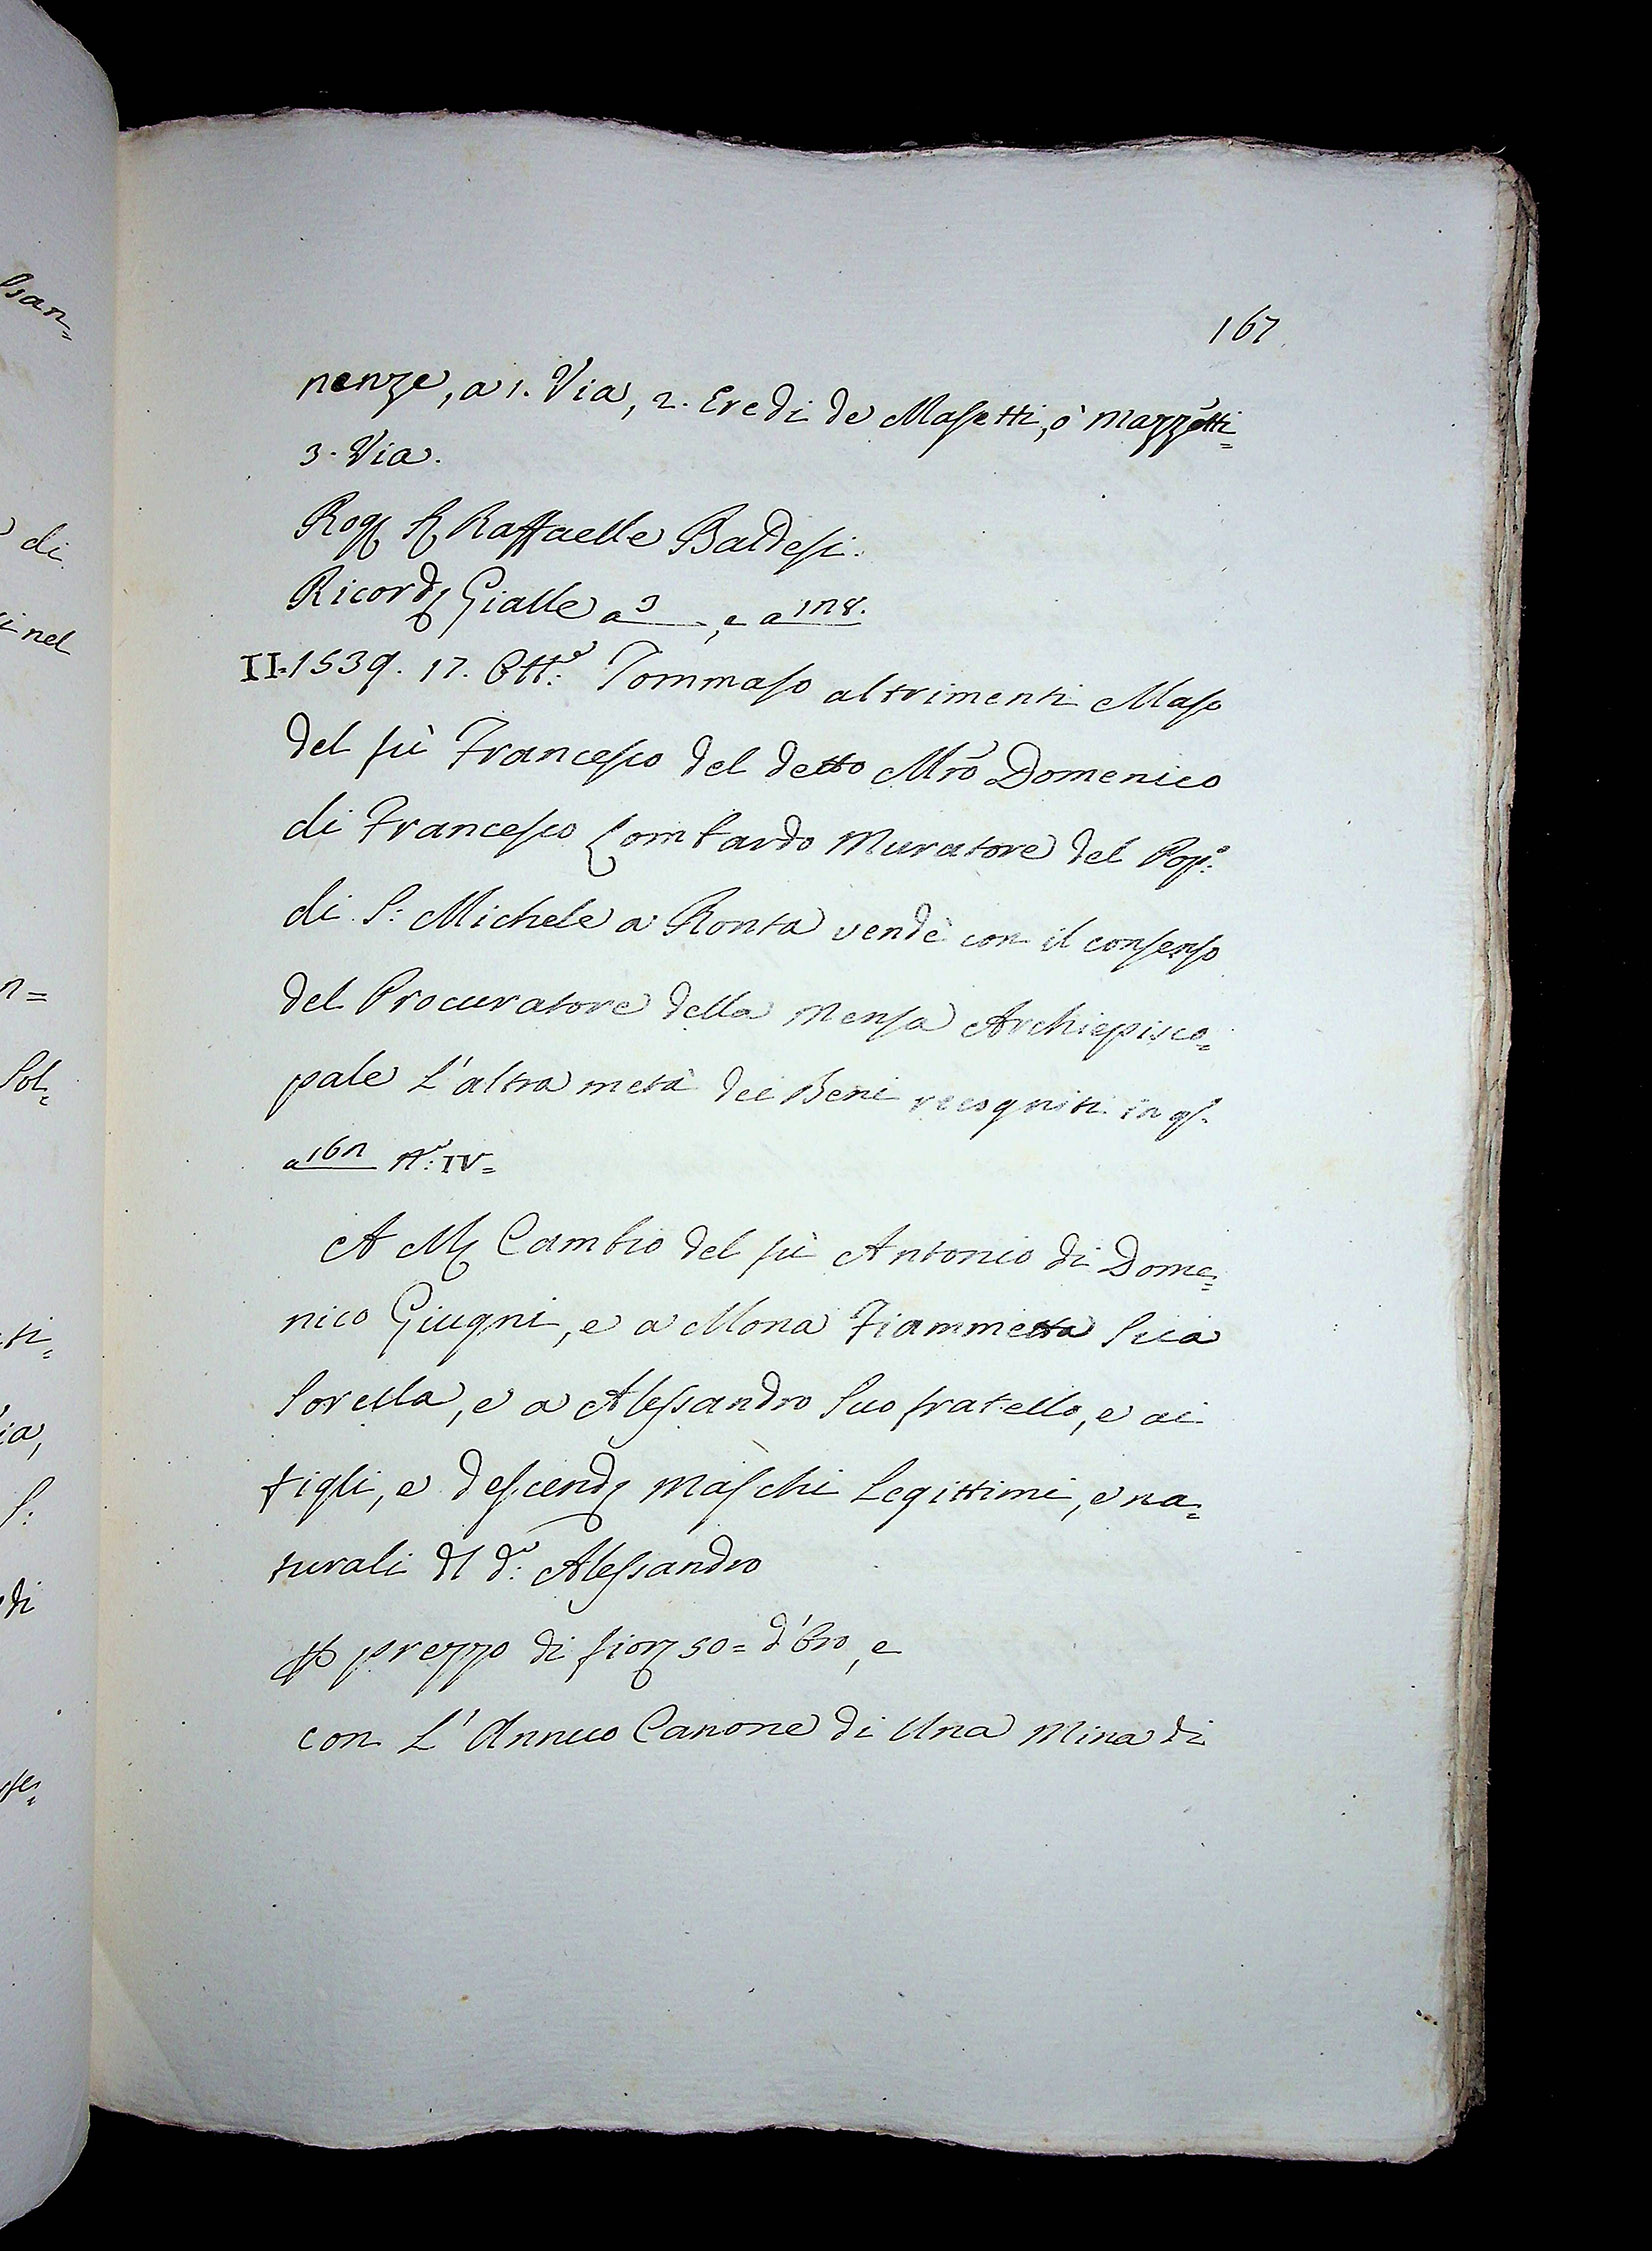 167
nenze, a 1. Via, 2. Eredi de Masetti, ò Mazzetti=
3. Via.
Rog Raffaelle Baldesi.
Ricord Gialle a 3, e a 178.
II. 1539. 17. Ott.e Tommaso altrimenti Maso
del fù Francesco del detto Mro Domenico
di Francesco Lombardo Muratore del Pop.o
di S: Michele a Ronta vendè con il consenso
del Procuratore della Mensa Archiepisco=
pale L'altra metà dei Beni recogniti in q.
a 167 N.o: IV=
A M Cambio del fù Antonio di Dome=
nico Giugni, e a Mona Fiammetta Sua
Sorella, e a Alessandro Suo fratello, e ai
figli, e descend Maschi Legittimi, e na=
turali dl d.o: Alessandro
prezzo di fior 50= d'Oro, e
con L'Annuo Canone di Una Mina di
ssan=
di
i nel
n=
Sol=
ti=
ia,
S:
di